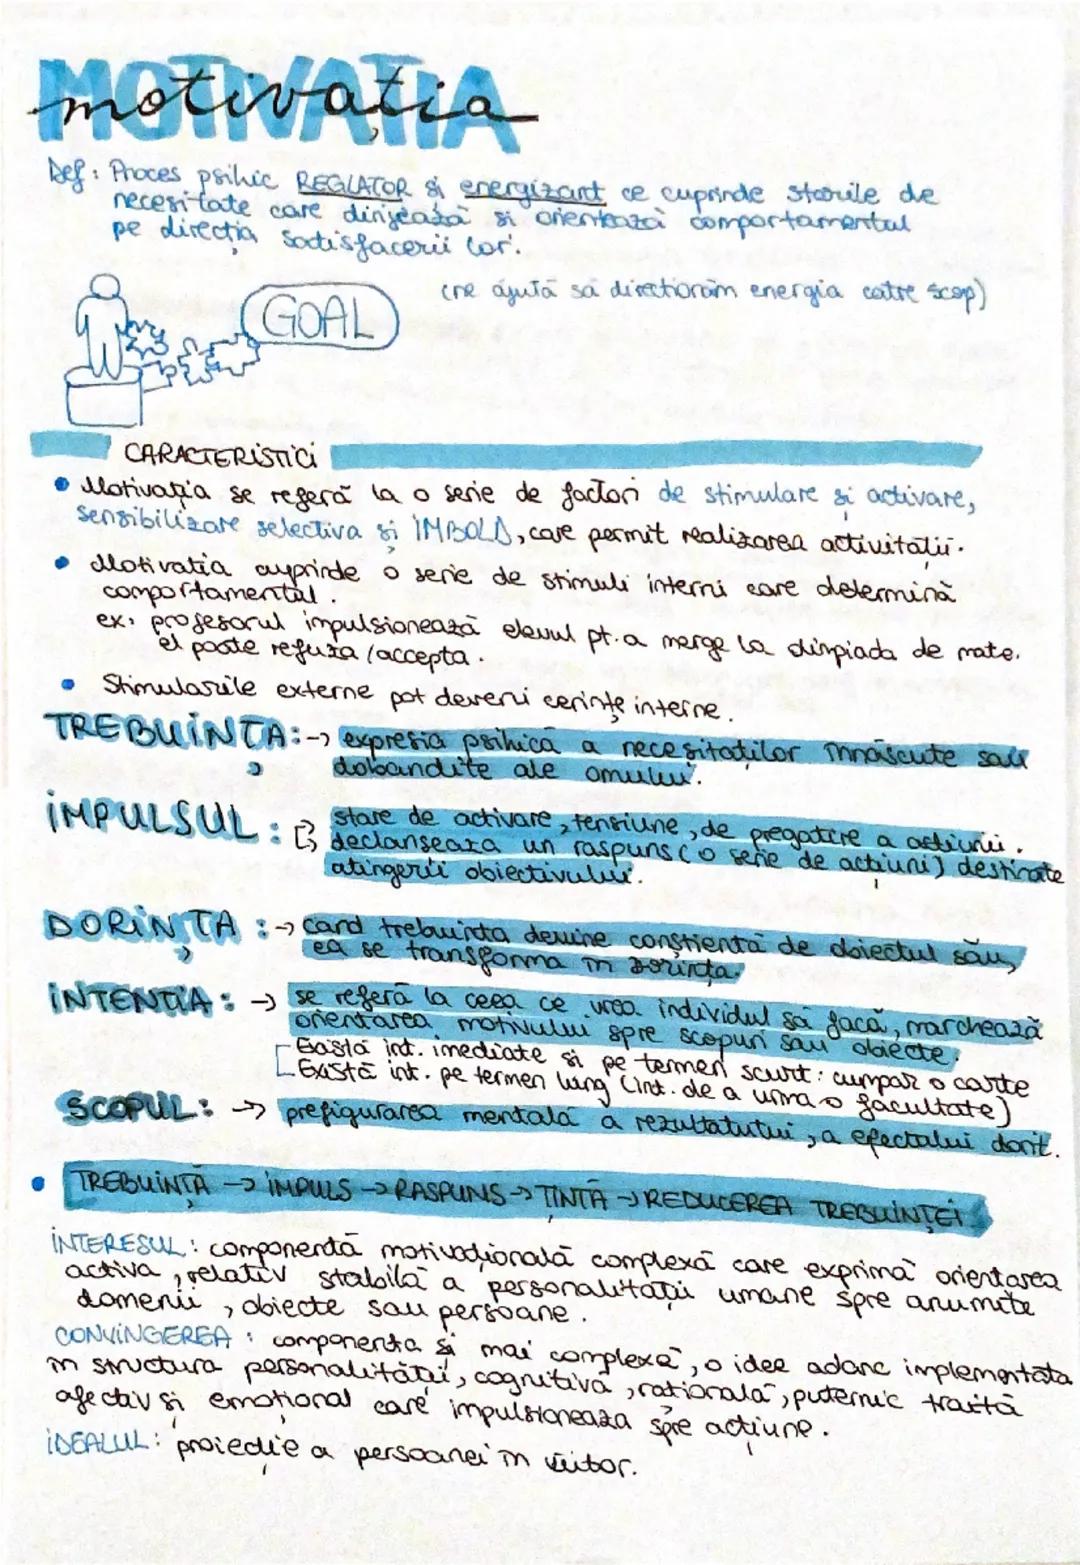 MOTIVAȚIA
motivatia
Def: Proces psihic REGLATOR și energizant ce cuprinde stările de
necesitate care dirijează si orientează comportamentul
pe direcția satisfacerii lor.
(ne ajută să direcționăm energia catre scop)
GOAL
CARACTERISTICI
• Motivația se referă la o serie de factori de stimulare și activare,
sensibilizare selectiva și IMBOLD, care permit realizarea activității.
• Motivatia cuprinde o serie de stimuli interni care determină
comportamentul.
ex: profesorul impulsionează elevul pt. a merge la olimpiada de mate.
el poate refuza/accepta.
• Stimulările externe pot deveni cerințe interne.
TREBUINȚA: → expresia psihică a necesitaților înnăscute sau
dobandite ale omului.
IMPULSUL: stare de activare, tensiune, de pregatire a acțiunii.
declanseaza un raspuns (o serie de acțiuni) destinate
atingerii obiectivului.
DORINȚA: → cand trebuinta devine conștientă de obiectul său,
ea se transforma in dorința.
INTENȚIA: → se referă la ceea ce vrea individul să facă, marchează
orientarea motivului spre scopuri sau obiecte.
Există int. imediate si pe termen scurt: cumpar o carte
Există int. pe termen lung (int. de a urma o facultate)
SCOPUL: → prefigurarea mentală a rezultatului, a efectului dorit.
• TREBUINȚĂ → IMPULS → RASPUNS → ȚINTĂ → REDUCEREA TREBUINȚEI
INTERESUL: componentă motivațională complexă care exprimă orientarea
activa, relativ stabilă a personalității umane spre anumite
domenii, obiecte sau persoane.
CONVINGEREA: componenta și mai complexă, o idee adanc implementata
in structura personalității, cognitivă, rațională, puternic traită
afectiv și emoțional care impulsioneaza spre acțiune.
IDEALUL: proiecție a persoanei in viitor.